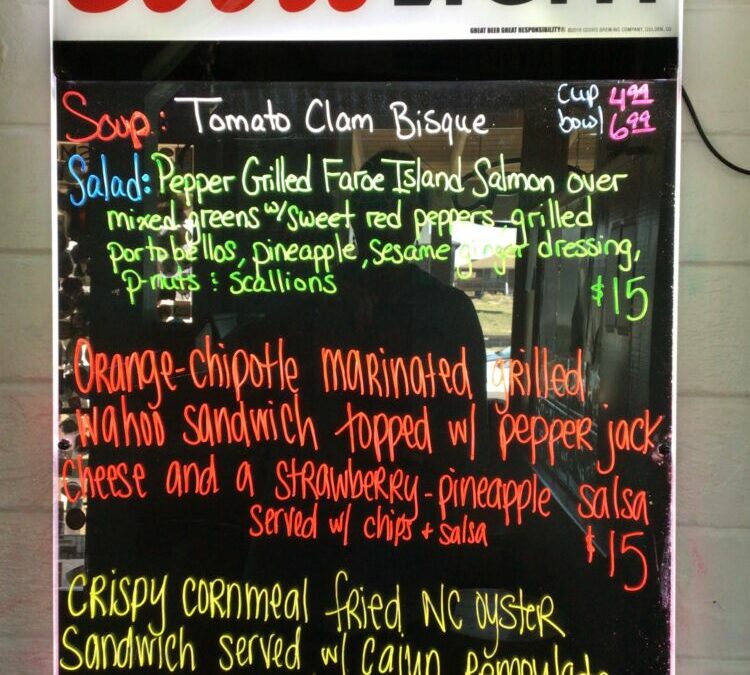 Coors LIGHT
GREAT BEER GREAT RESPONSIBILITY® ©2016 COORS BREWING COMPANY, GOLDEN, CO
Soup: Tomato Clam Bisque cup 4.99
bowl 6.99
Salad: Pepper Grilled Faroe Island Salmon over
mixed greens w/ sweet red peppers, grilled
portobellos, pineapple, sesame ginger dressing,
p-nuts & scallions $15
Orange-chipotle marinated grilled
wahoo sandwich topped w/ pepper jack
cheese and a strawberry-pineapple salsa
served w/ chips + salsa $15
Crispy cornmeal fried NC oyster
Sandwich served w/ Cajun remoulade